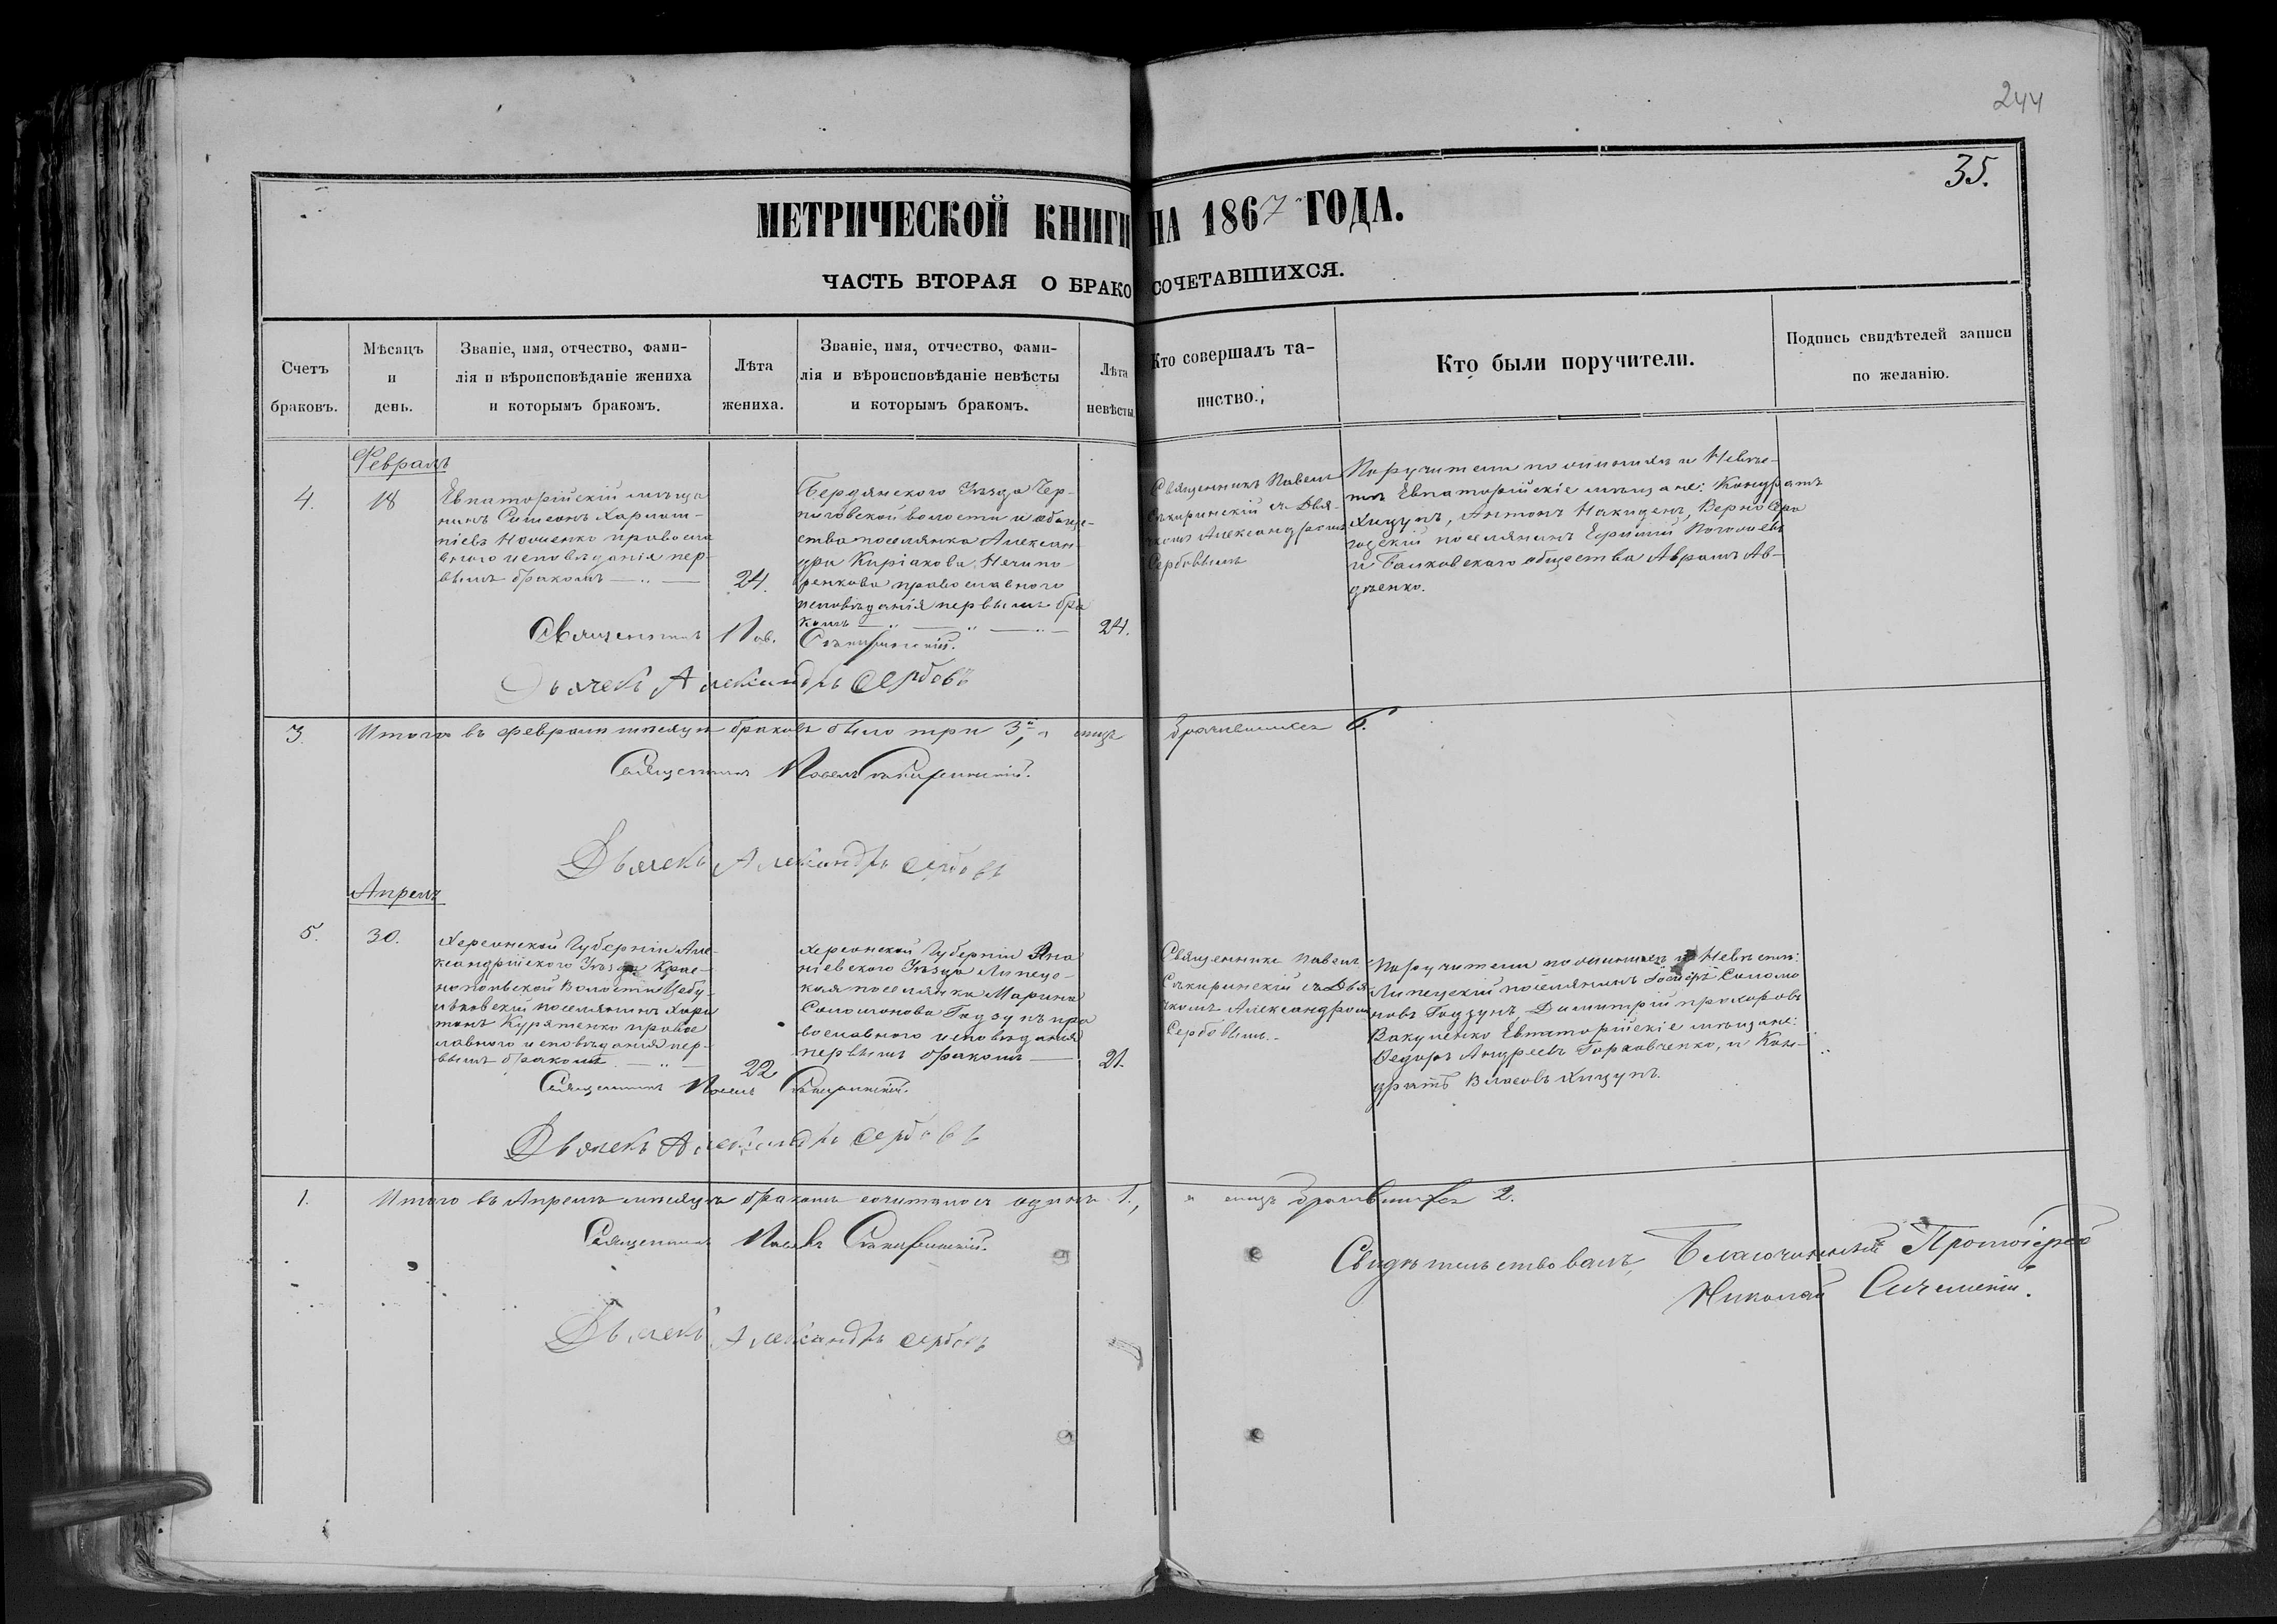 244
35.
МЕТРИЧЕСКОЙ КНИГИ НА 1867 ГОДА.
ЧАСТЬ ВТОРАЯ О БРАКОСОЧЕТАВШИХСЯ.
Счетъ
браковъ.
Мѣсяцъ
и
день.
Званіе, имя, отчество, фами-
лія и вѣроисповѣданіе жениха
и которымъ бракомъ.
Лѣта
жениха.
Званіе, имя, отчество, фами-
лія и вѣроисповѣданіе невѣсты
и которымъ бракомъ.
Лѣта
невѣсты.
Кто совершалъ та-
инство.
Кто были поручители.
Подпись свидѣтелей записи
по желанію.
Февраль
4.
18
Евпаторійскій мѣща
нинъ Симеонъ Харлам-
піевъ православ
наго исповѣданія пер-
вымъ бракомъ
24.
Бердянскаго Уѣзда Чер-
ниговской волости и обще-
ства поселянка Алексан-
дра Киріакова Нечипо-
ренкова православнаго
исповѣданія первымъ бра
комъ
24.
Священникъ Павелъ
Съкиринскій съ Дья-
чкомъ Александромъ
Сербовымъ
Поручители по женихѣ и Невѣс-
тѣ Евпаторійскіе мѣщане: Кондратъ
Хицунъ, Антонъ
поселянинъ
и общества Аврамъ Ав-
дѣенко.
Священникъ Пав. Съкиринскій.
Дьячекъ Александръ Сербовъ
3.
Итого въ февралѣ мѣсяцѣ браковъ было три 3, а лицъ брачившихся 6.
Священникъ Павелъ Съкиринскій.
Дьячекъ Александръ Сербовъ
Апрель
5.
30.
Херсонской Губерніи Але-
ксандрійскаго Уѣзда Крас-
нопольской Волости Цебу-
лѣвскій поселянинъ Хари
тонъ Куряченко правос
лавнаго исповѣданія пер-
вымъ бракомъ
22
Херсонской Губерніи Ана
ніевскаго Уѣзда Липецс-
кая поселянка Марина
Соломонова Годзунъ пра
вославнаго исповѣданія
первымъ бракомъ
21.
Священникъ Павелъ
Съкиринскій съ Дья
чкомъ Александромъ
Сербовымъ.
Поручители по женихѣ и Невѣстѣ:
Липецскій поселянинъ Соломо
новъ Годзунъ, Димитрій Прохоровъ
Вакуленко Евпаторійскіе мѣщане:
Ѳедоръ Андреевъ Горковченко, и Кон-
дратъ Власовъ Хицунъ.
Священникъ Павелъ Съкиринскій.
Дьячекъ Александръ Сербовъ
1.
Итого въ Апрелѣ мѣсяцѣ бракомъ сочиталось одинъ 1, а лицъ брачившихся 2.
Священникъ Павелъ Съкиринскій.
Дьячекъ Александръ Сербовъ
Свидѣтельствовалъ, Благочинный Протоіерей
Николай